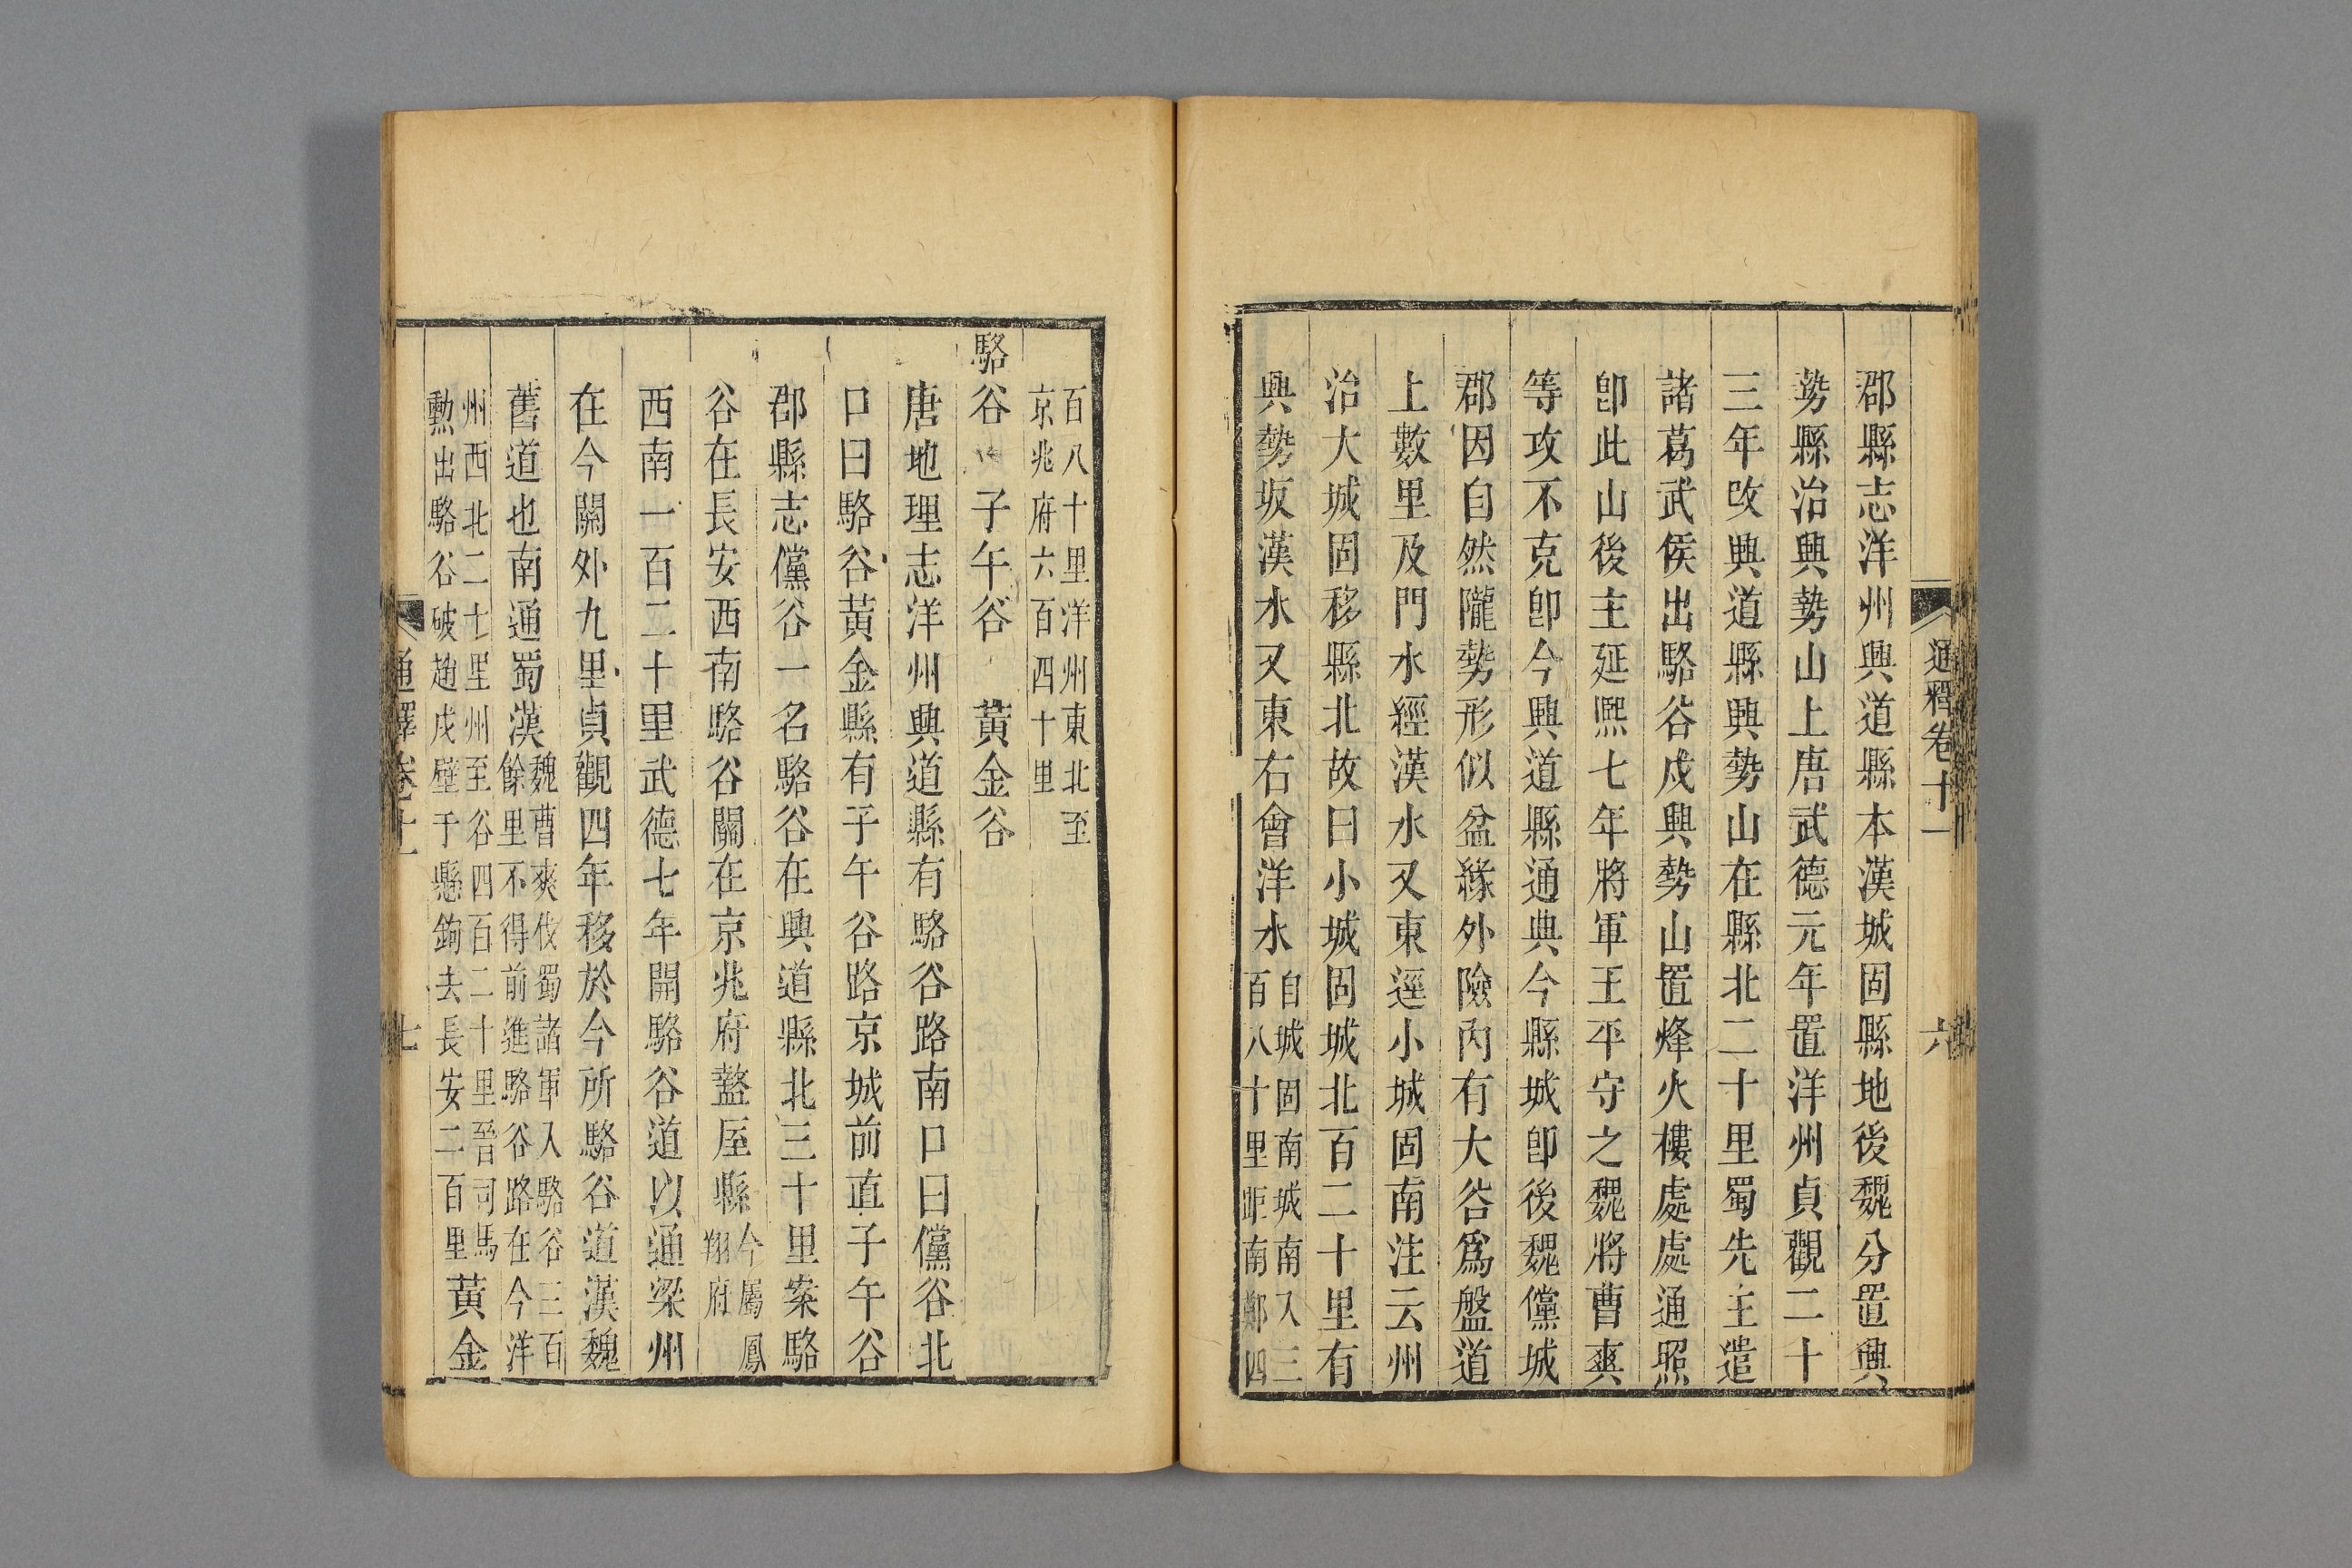 通釋卷十一 六
郡縣志洋州興道縣本漢城固縣地後魏分置興
勢縣治興勢山上唐武德元年置洋州貞觀二十
三年改興道縣興勢山在縣北二十里蜀先主遣
諸葛武侯出駱谷戍興勢山置烽火樓處處通照
卽此山後主延熙七年將軍王平守之魏將曹爽
等攻不克卽今興道縣通典今縣城卽後魏儻城
郡因自然隴勢形似盆緣外險內有大谷爲盤道
上數里及門水經漢水又東逕小城固南注云州
治大城固移縣北故曰小城固城北百二十里有
興勢坂漢水又東右會洋水
自城固南城南入三
百八十里距南鄭四
百八十里洋州東北至
京兆府六百四十里
駱谷 子午谷 黃金谷
唐地理志洋州興道縣有駱谷路南口曰儻谷北
口曰駱谷黃金縣有子午谷路京城前直子午谷
郡縣志儻谷一名駱谷在興道縣北三十里案駱
谷在長安西南駱谷關在京兆府盩厔縣
今屬鳳
翔府
西南一百二十里武德七年開駱谷道以通梁州
在今關外九里貞觀四年移於今所駱谷道漢魏
舊道也南通蜀漢
魏曹爽伐蜀諸軍入駱谷三百
餘里不得前進駱谷路在今洋
州西北二十里州至谷四百二十里晉司馬
勳出駱谷破趙戍壁于懸鉤去長安二百里
黃金
通釋卷十一 七